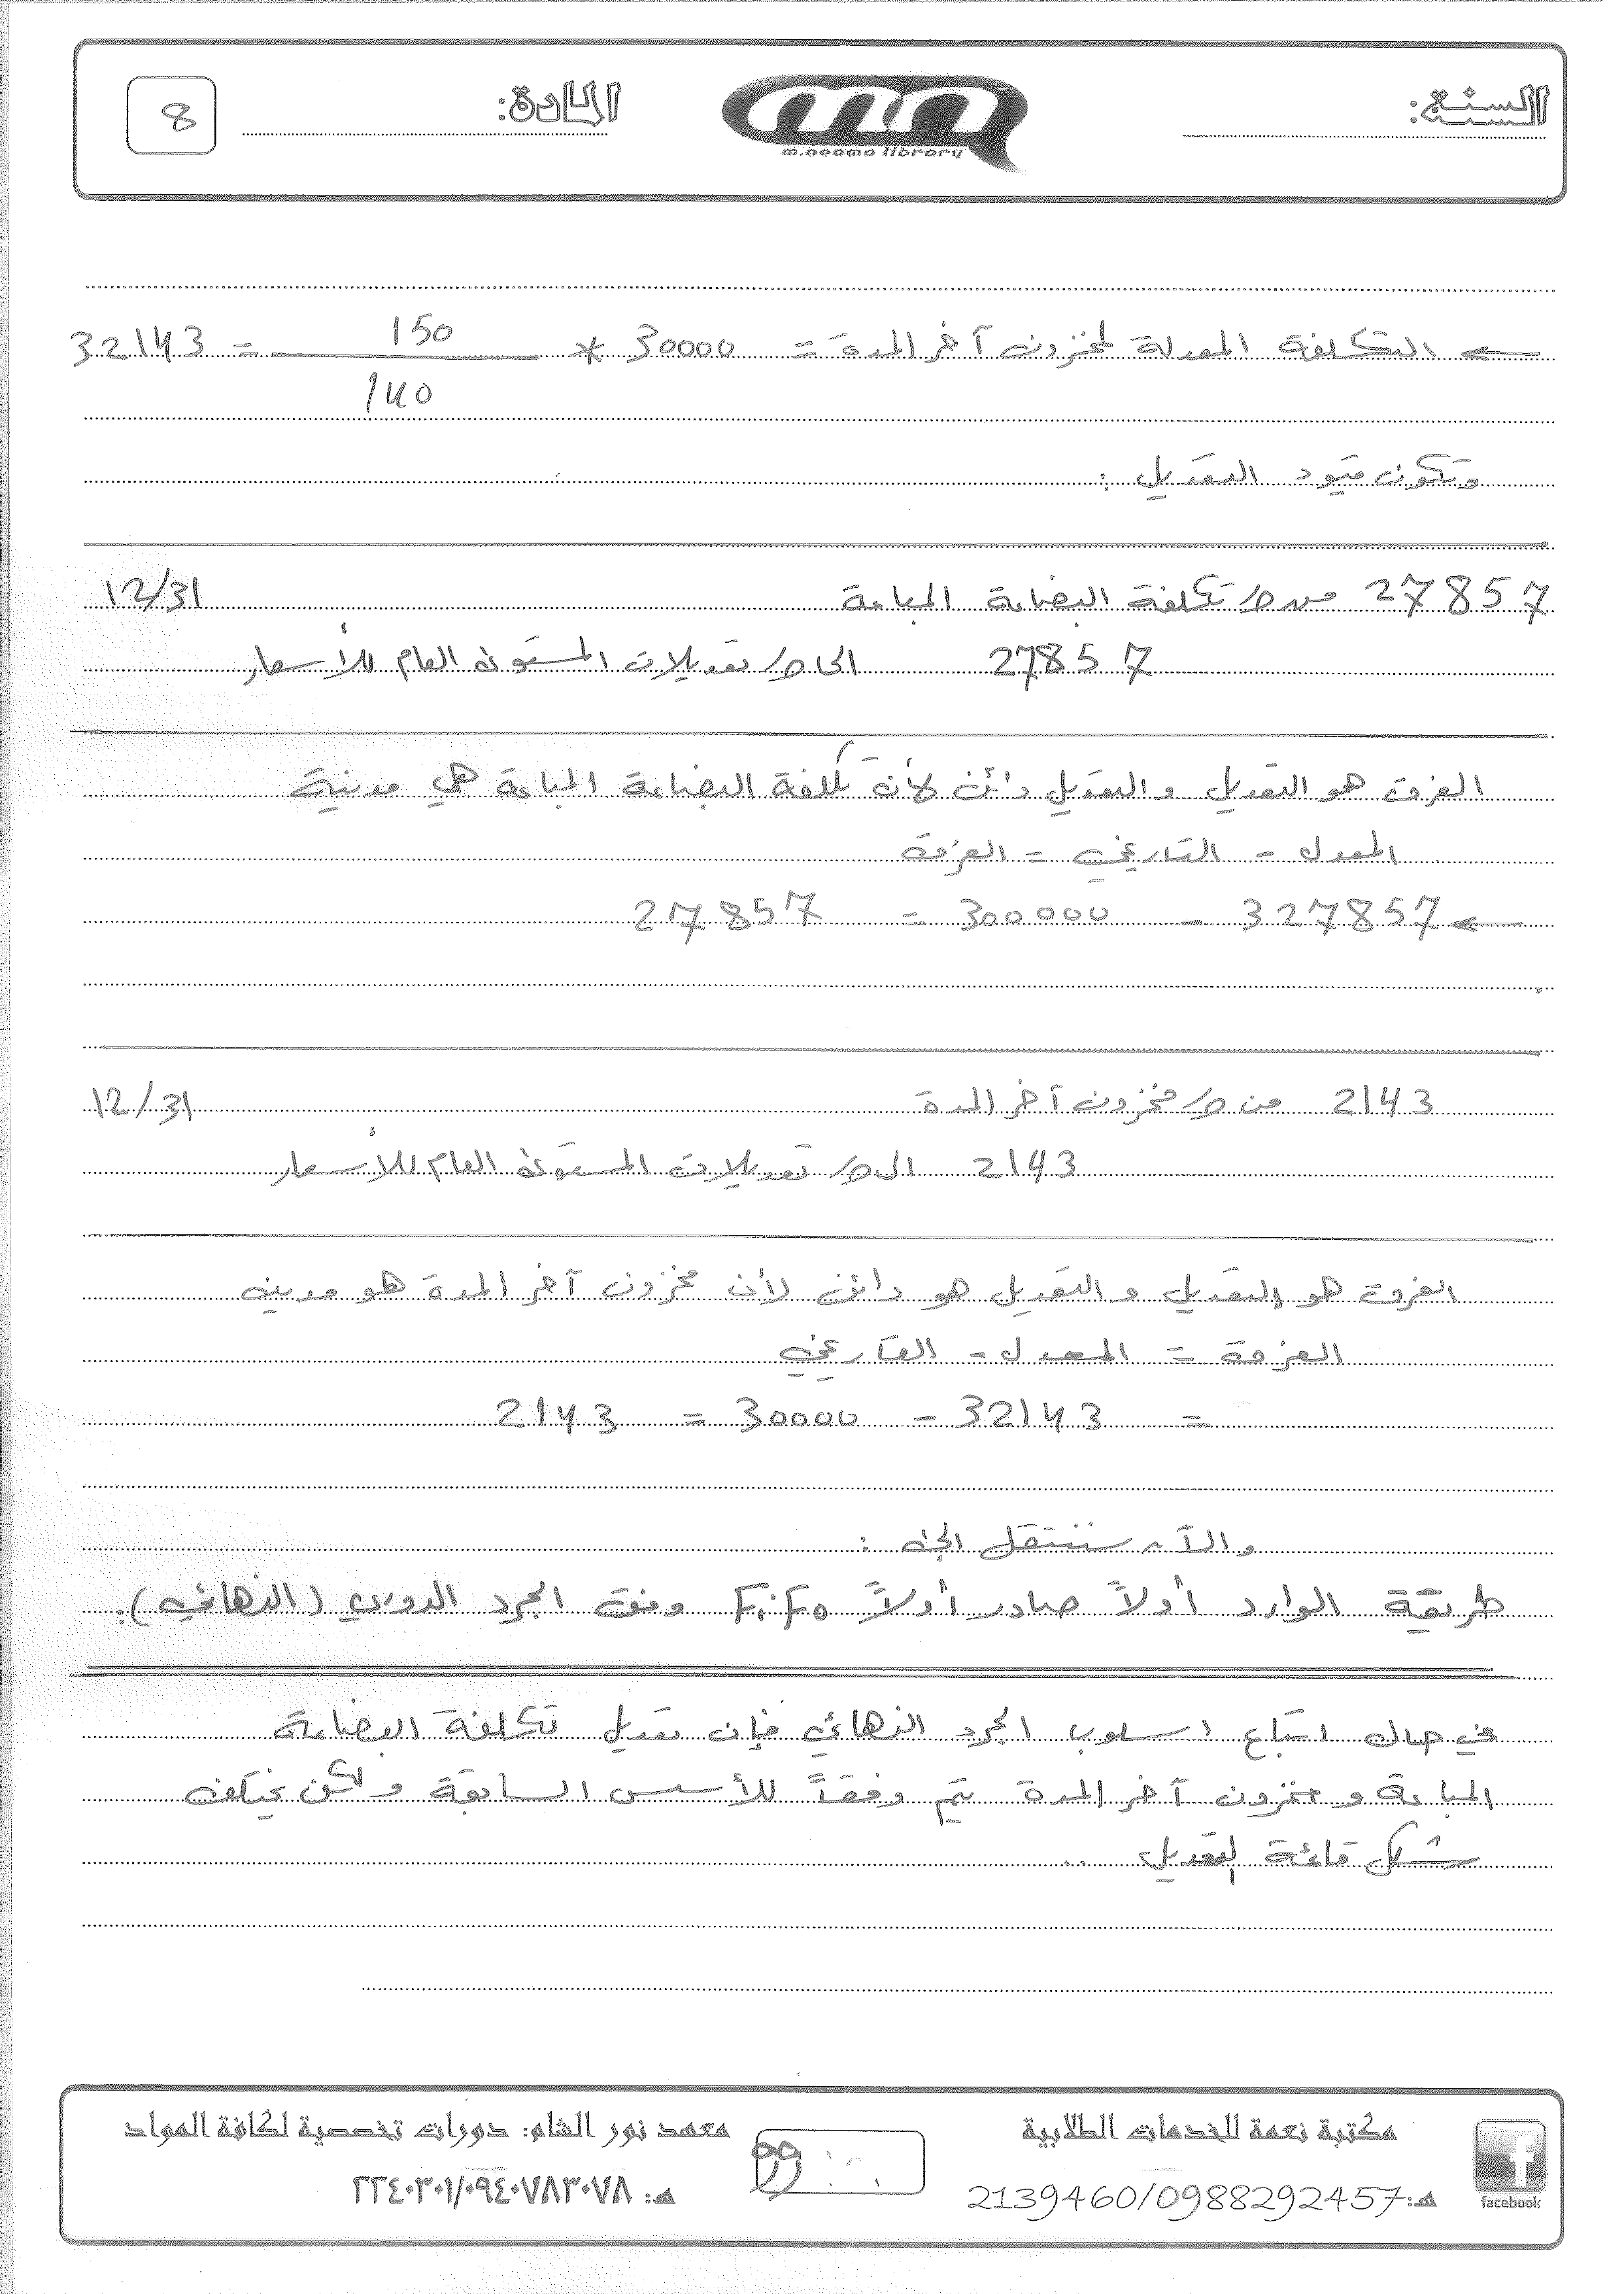 السنة:
m.neama library
المادة:
8
← التكلفة المعدلة لمخزون آخر المدة = 30000 * 150 / 140 = 32143
وتكون قيود التعديل :
27857 من ح/ تكلفة البضاعة المباعة 12/31
27857 الى ح/ تعديلات المستوى العام للأسعار
الفرق هو التعديل والتعديل دائن لأن تكلفة البضاعة المباعة هي مدينة
المعدل - التاريخي = الفرق
← 327857 - 300000 = 27857
2143 من ح/ مخزون آخر المدة 12/31
2143 الى ح/ تعديلات المستوى العام للأسعار
الفرق هو التعديل والتعديل هو دائن لأن مخزون آخر المدة هو مدينه
الفرق = المعدل - التاريخي
= 32143 - 30000 = 2143
والآن سننتقل الى :
طريقة الوارد أولاً صادر أولاً FiFo وفق الجرد الدوري (النهائي):
في حال اتباع اسلوب الجرد النهائي فإن تعديل تكلفة البضاعة
المباعة و مخزون آخر المدة يتم وفقاً للأسس السابقة ولكن يختلف
شكل قائمة التعديل ..
facebook
مكتبة نعمة للخدمات الطلابية
هـ: 2139460/0988292457
99
معهد نور الشام: دورات تخصصية لكافة المواد
هـ: ٢٢٤٠٣٠١/٠٩٤٠٧٨٣٠٧٨